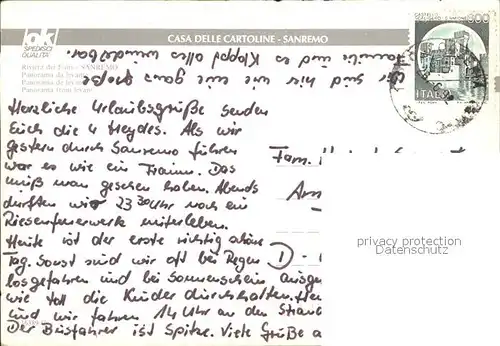 lok
SPEDISCI
QUALITÀ
CASA DELLE CARTOLINE - SANREMO
Riviera dei Fiori - SANREMO
Panorama da levante
Panorama du levant
Panorama from levant
300
ITALIA
Wir sind hier wie eine ganz große
Familie und es klappt alles wunderbar.
Herzliche Urlaubsgrüße senden
Euch die 4 Heydes. Als wir
gestern durch Sanremo fuhren
war es wie ein Traum. Das
muß man gesehen haben. Abends
durften wir 23 30 Uhr noch ein
Riesenfeuerwerk miterleben.
Heute ist der erste richtig schöne
Tag. Sonst sind wir oft bei Regen
losgefahren und bei Sonnenschein
wie toll die Kinder durchhalten.
und wir fahren 14 Uhr an den
Der Busfahrer ist Spitze. Viele Grüße
Fam.
D -
privacy protection
www.ansichtskartenversand.com